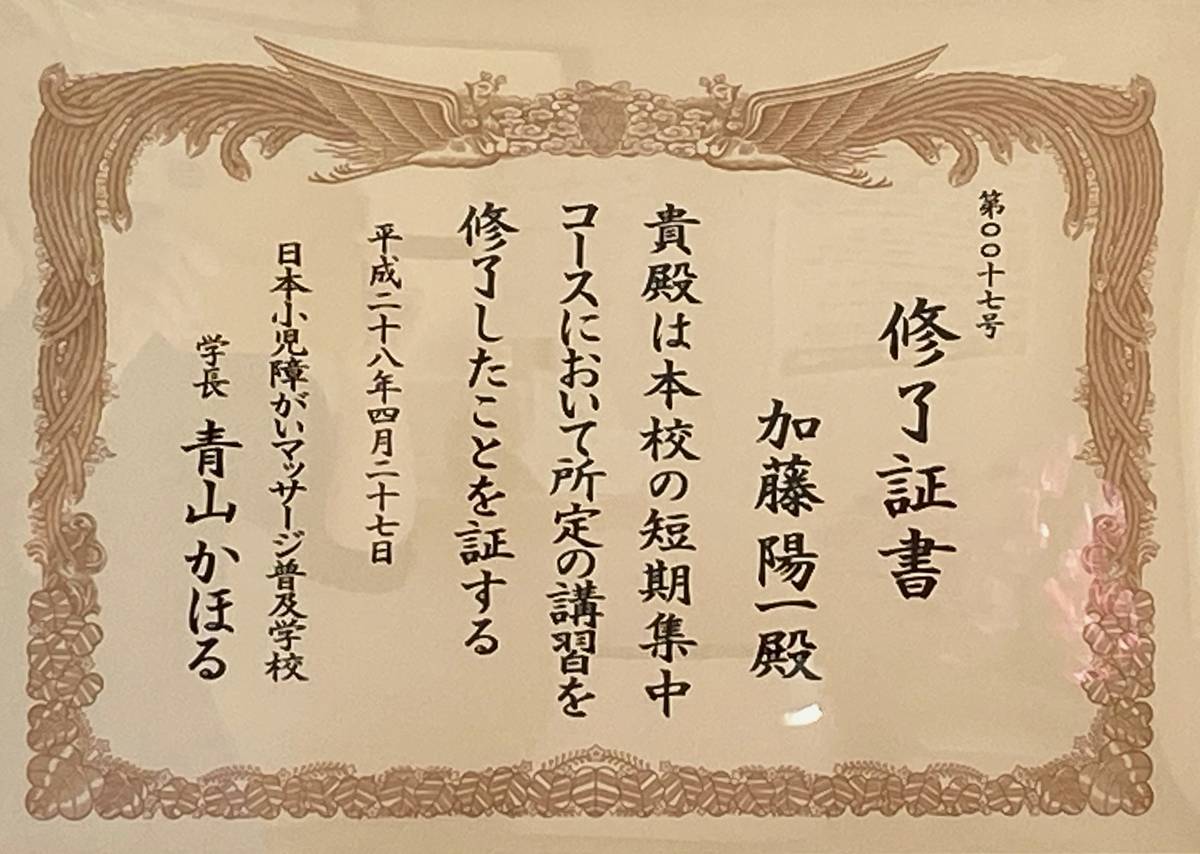 第〇〇十七号
修了証書
加藤陽一殿
貴殿は本校の短期集中
コースにおいて所定の講習を
修了したことを証する
平成二十八年四月二十七日
日本小児障がいマッサージ普及学校
学長 青山かほる